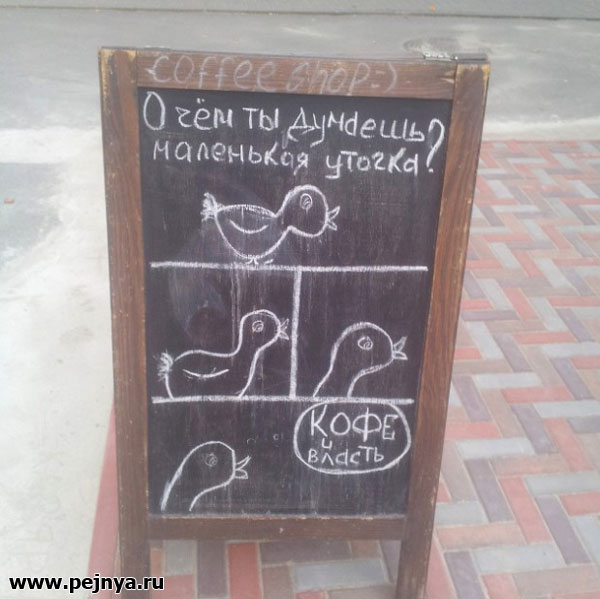 coffee shop:)
О чём ты думаешь
маленькая уточка?
КОФЕ
и
власть
www.pejnya.ru